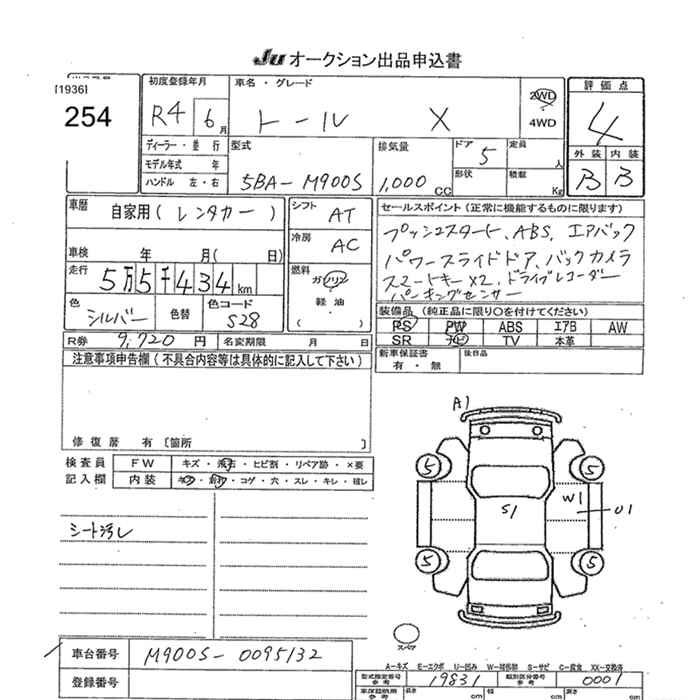 Ju オークション出品申込書
[1936]
254
初度登録年月
R4 6月
車名・グレード
トール X
2WD
4WD
評価点
4
外装 内装
B B
ディーラー・並行
モデル年式 年
ハンドル 左・右
型式
5BA-M900S
排気量
1,000 CC
ドア 5
形状
定員 人
積載 Kg
車歴
自家用(レンタカー)
シフト AT
車検 年 月(日)
冷房 AC
走行
5万5千434km
燃料
ガソリン
軽油
( )
色
シルバー
色替
色コード
S28
R券 9,720 円
名変期限 月 日
セールスポイント(正常に機能するものに限ります)
プッシュスタート、ABS、エアバック
パワースライドドア、バックカメラ
スマートキー×2、ドライブレコーダー
パーキングセンサー
装備品(純正品に限り○を付けてください)
PS PW ABS エアB AW
SR ナビ TV 本革
新車保証書
有・無
後日品
注意事項申告欄(不具合内容等は具体的に記入して下さい)
修復歴 有〔箇所 〕
検査員
記入欄
FW キズ・飛石・ヒビ割・リペア跡・×要
内装 キズ・汚れ・コゲ・穴・スレ・キレ・破レ
シート汚レ
A1
5 5
S1 W1 U1
5 5
スペア
車台番号 M900S-0095132
登録番号
A-キズ E-エクボ U-凹み W-補修跡 S-サビ C-腐食 XX-交換済
型式指定番号
参考
19831
類別区分番号
参考
0001
車検証記載
参考
長さ cm
幅 cm
高さ cm